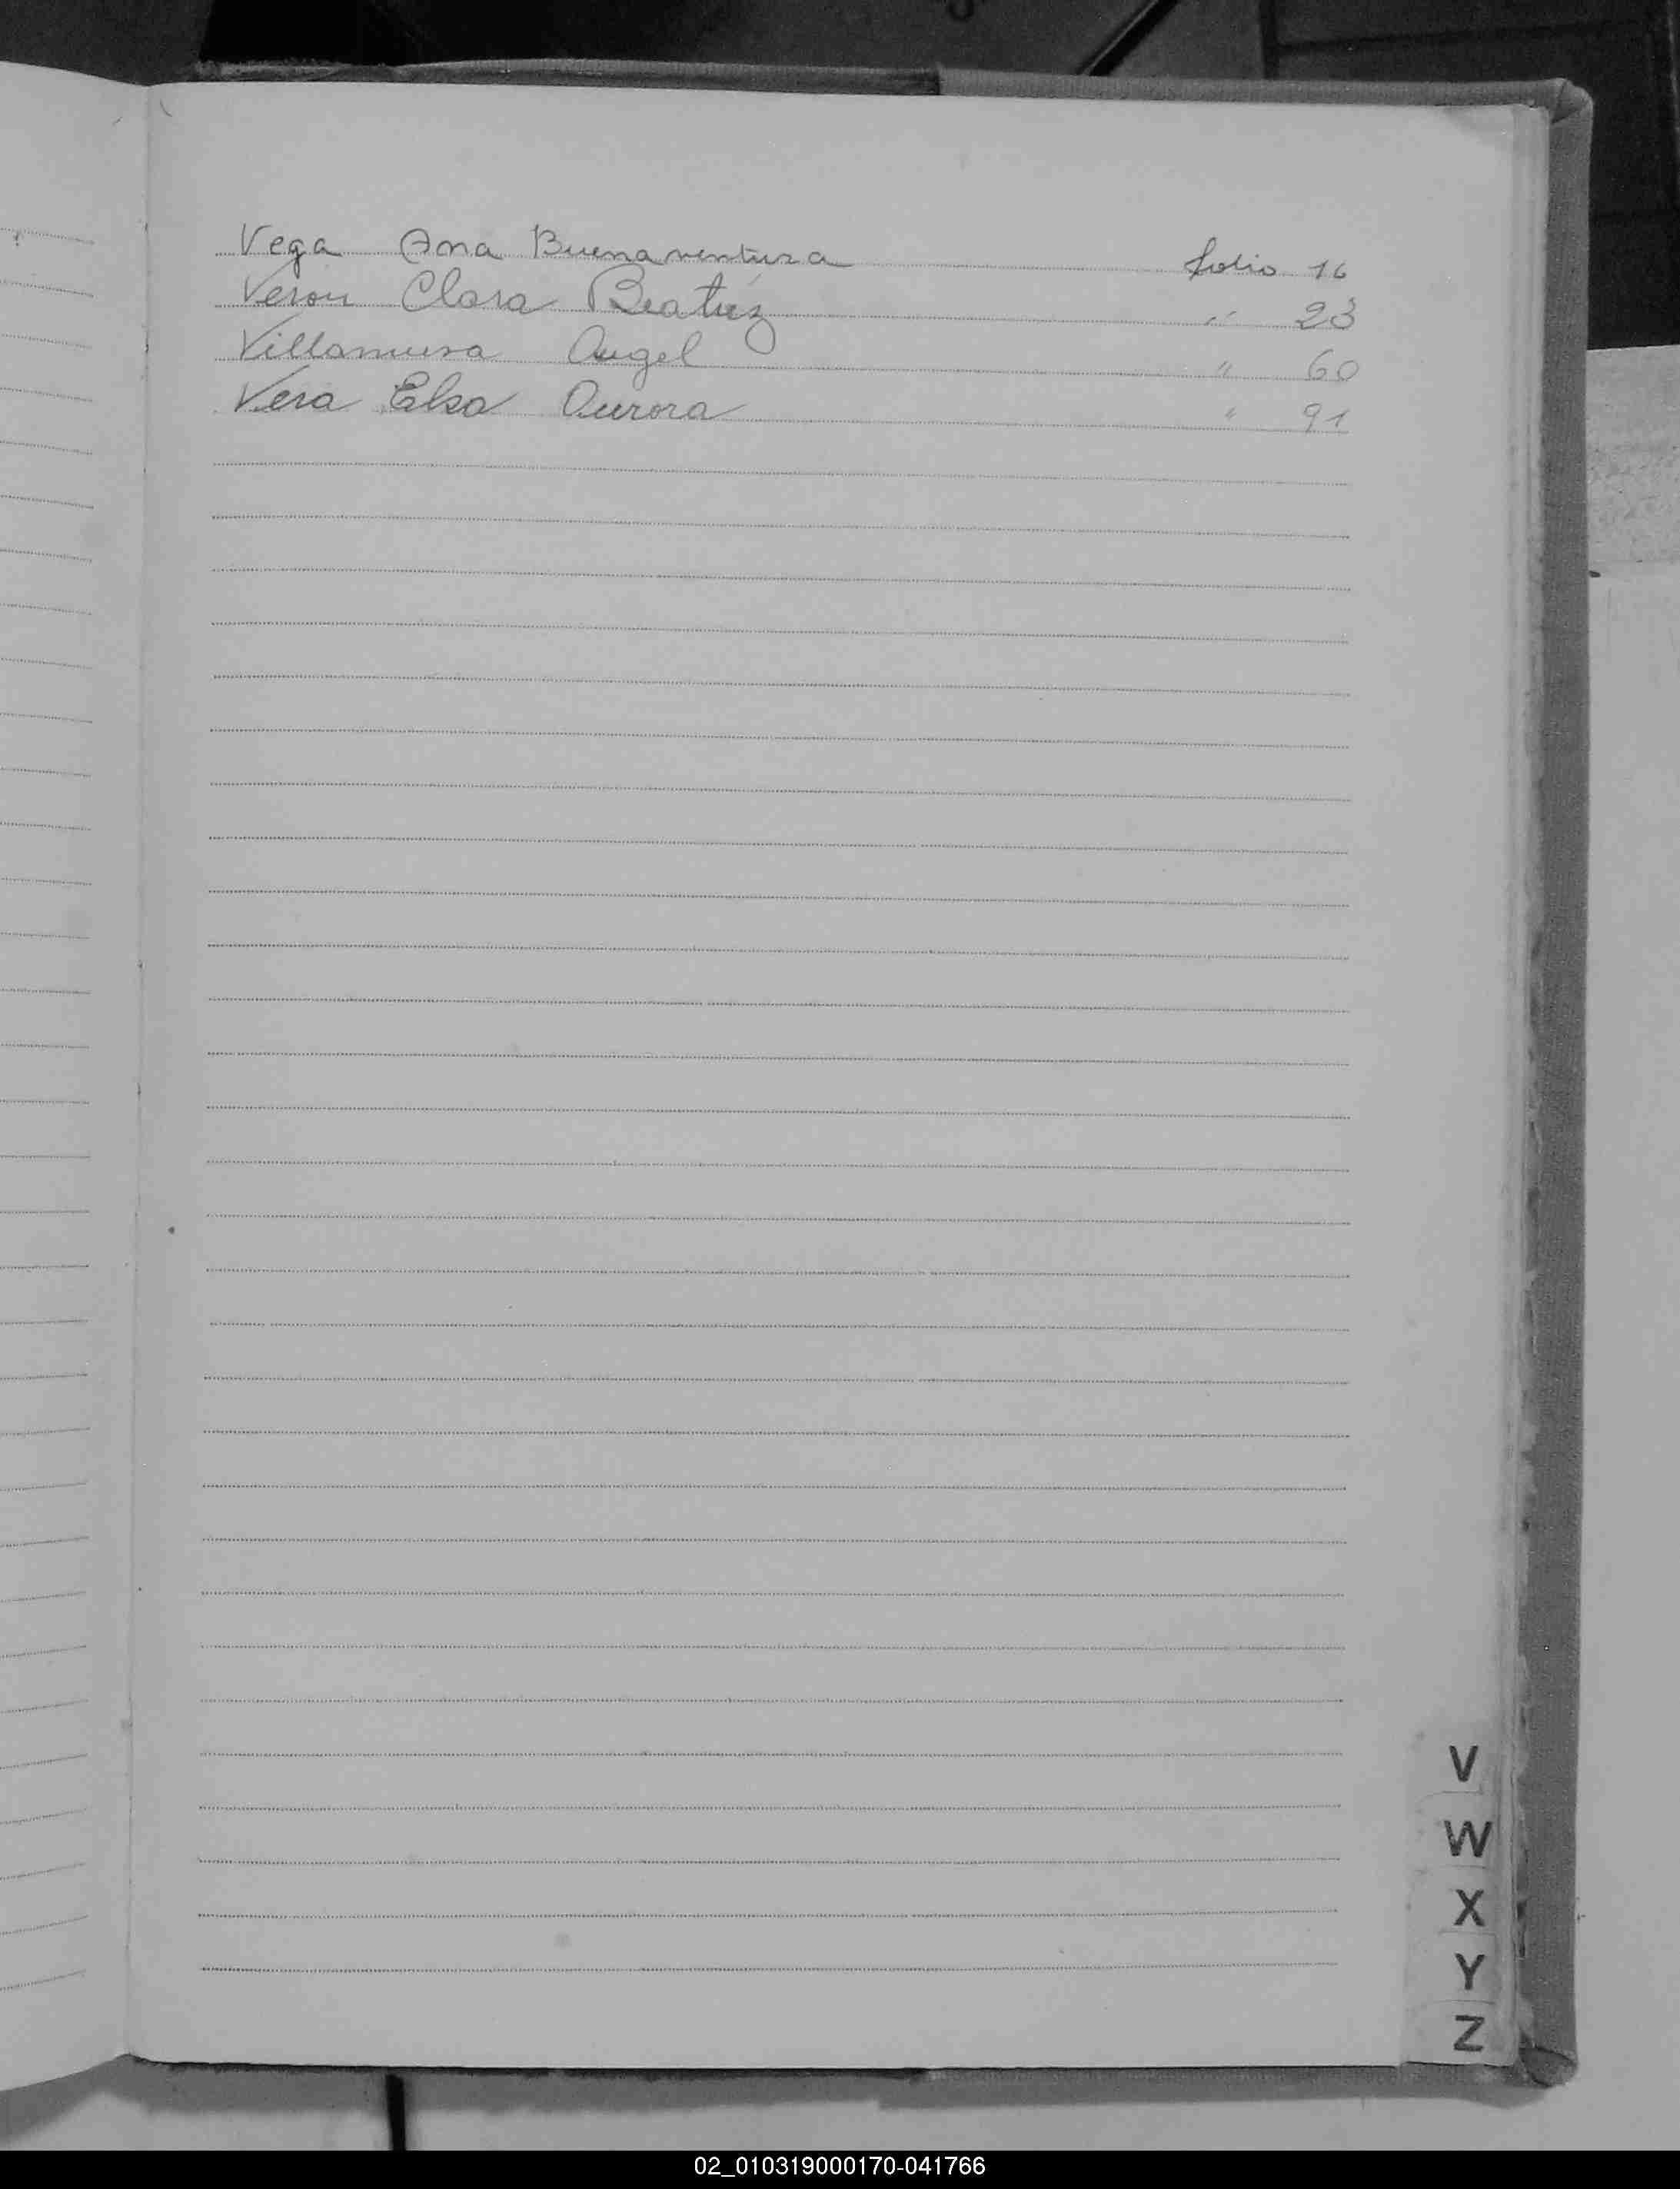 Vega Ana Buenaventura folio 16
Veron Clara Beatriz " 23
Villamura Angel " 60
Vera Elsa Aurora " 91
V
W
X
Y
Z
02_010319000170-041766